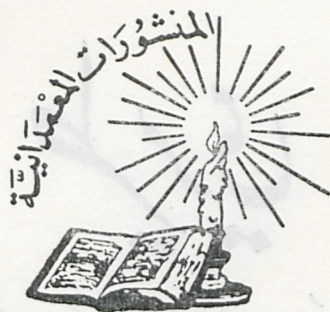 المنشُورَات المَعْمَدَانِيَّة